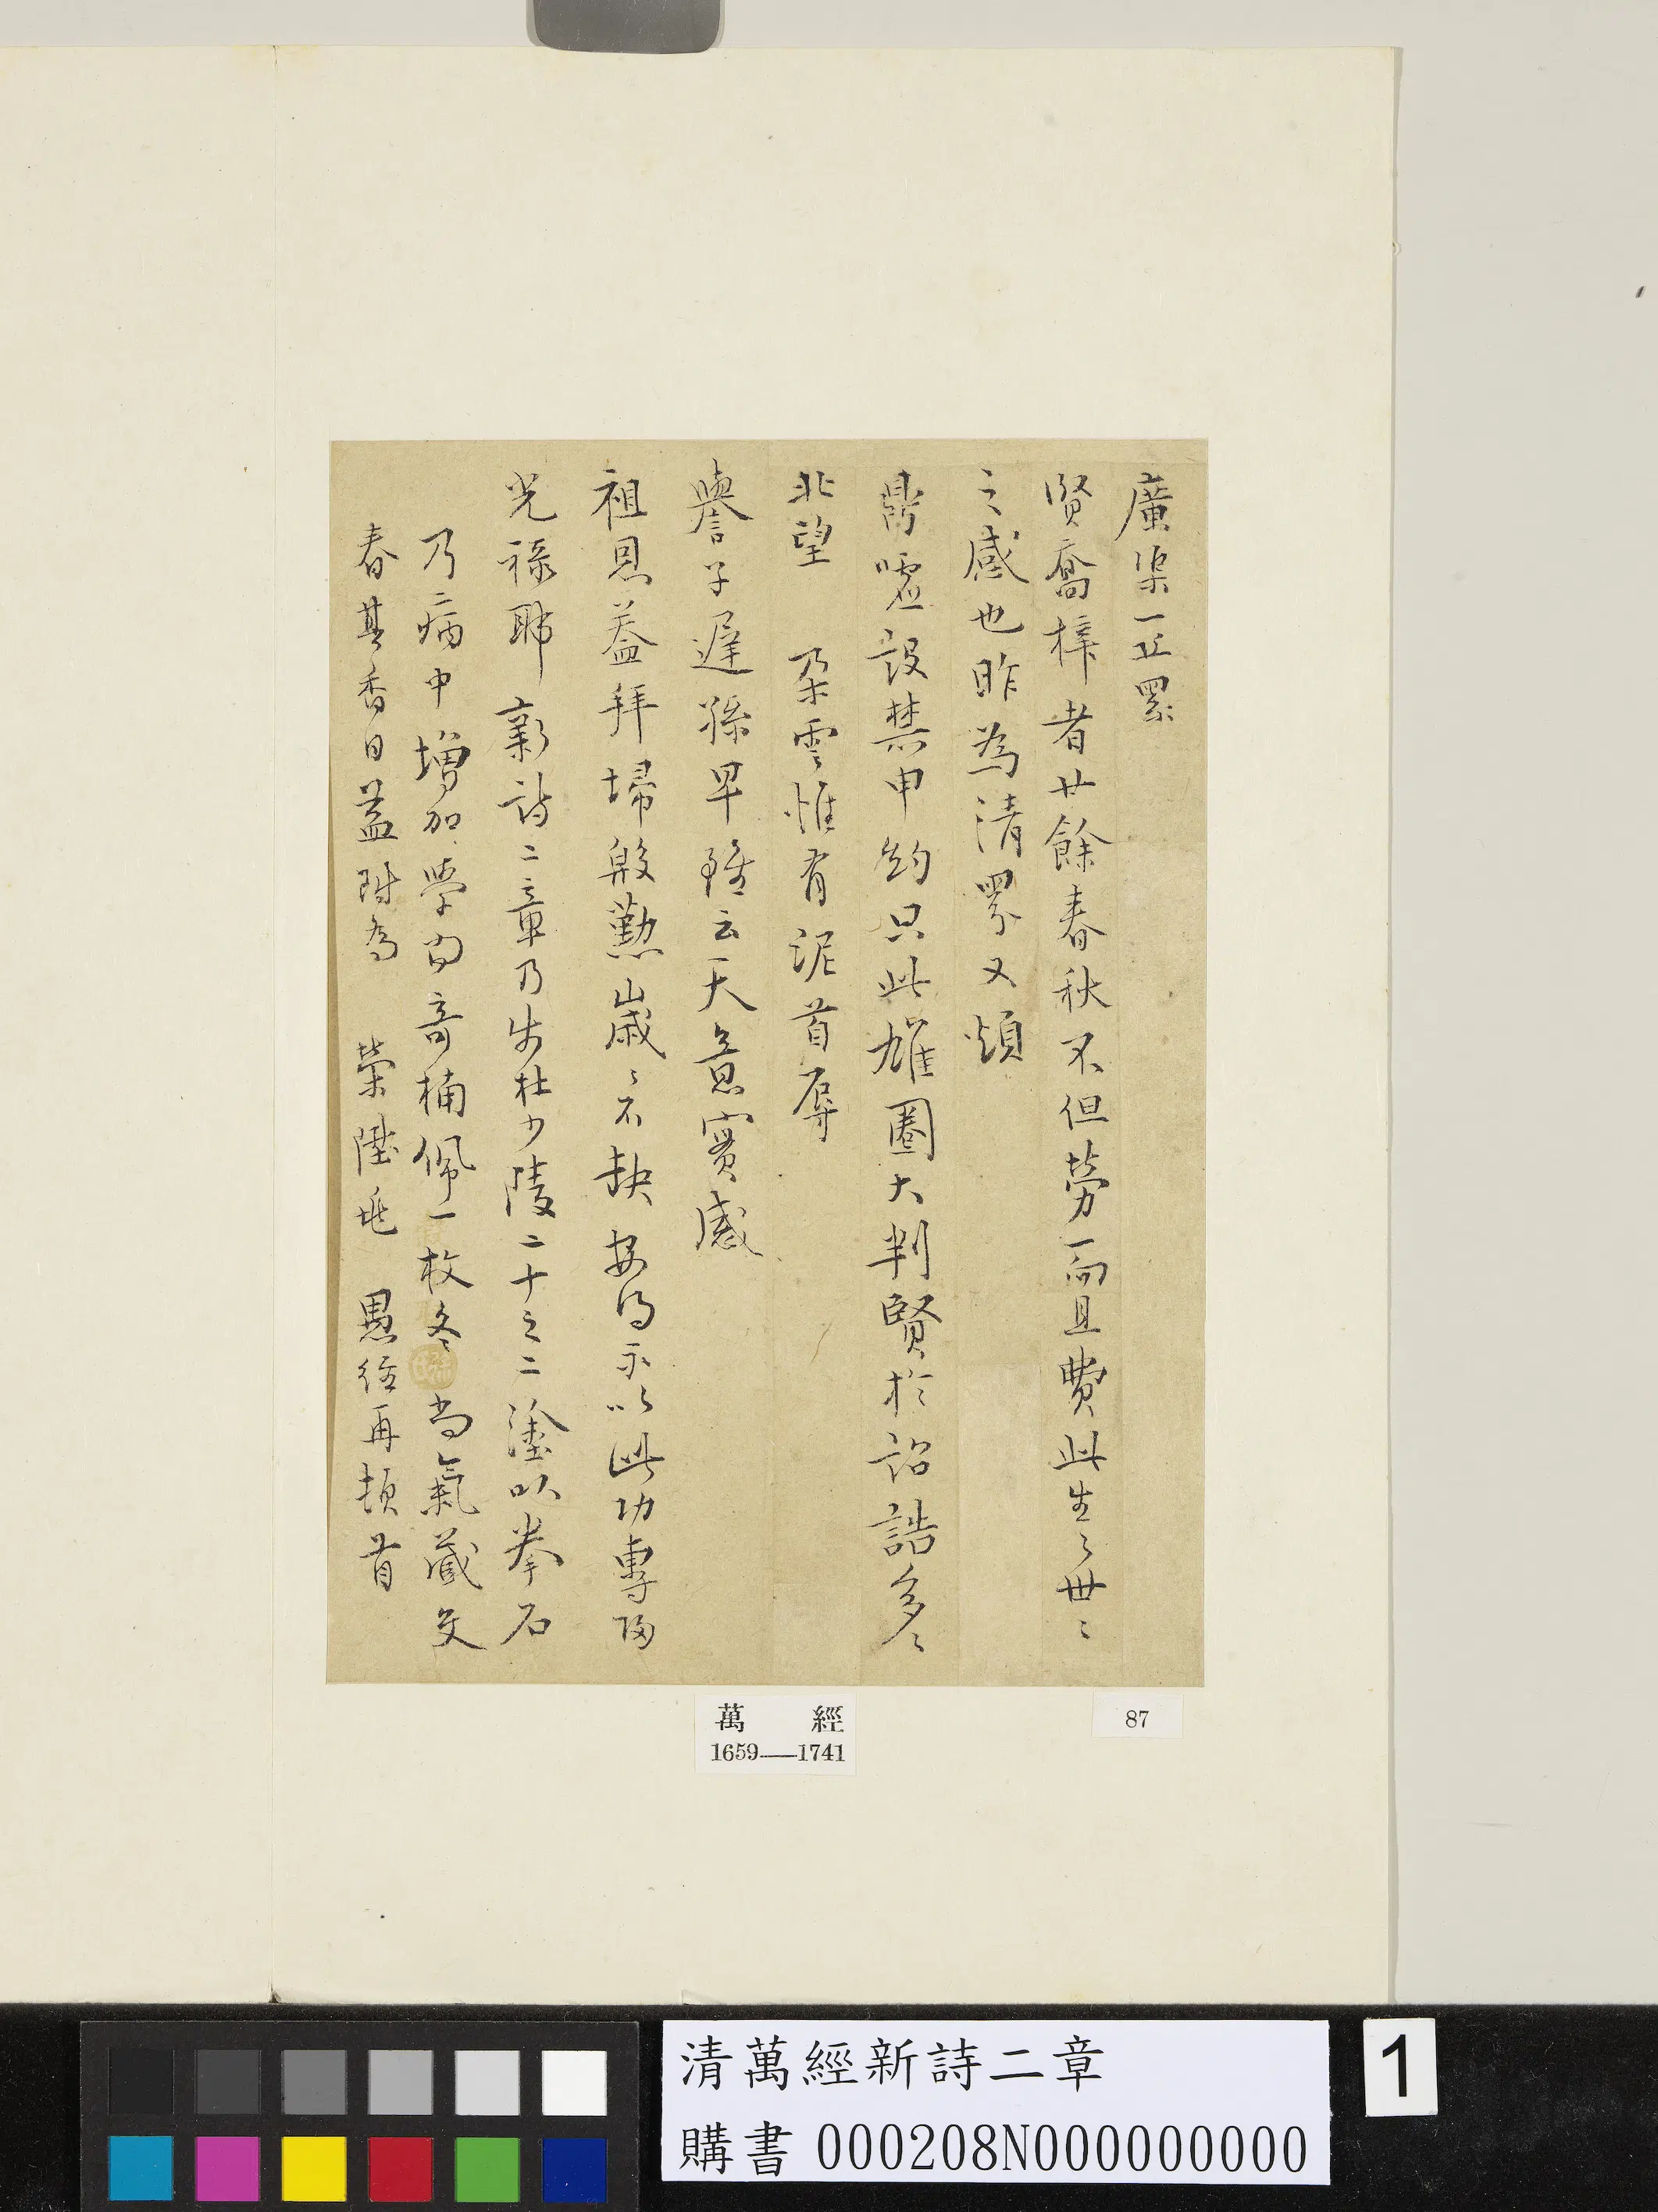 廣渠一正累
賢喬梓者廿餘春秋不但勞而且費此生〻世〻
之感也昨為清累又煩
鼎噓設禁申約只此雄圈大判賢於詔誥多〻
北望 朵雲惟有泥首辱
譽子遲孫早雖云天意實感
祖恩益拜埽殷勤歲〻不缺安得永以此功專歸
光祿耶 新詩二章乃步杜少陵二十之二塗以拳石
乃病中增加學問奇楠佩一枚冬尚氣藏文
春其香日益附為 榮陞 愚經再頓首
萬 經
1659—1741
87
清萬經新詩二章
購書 000208N000000000
1